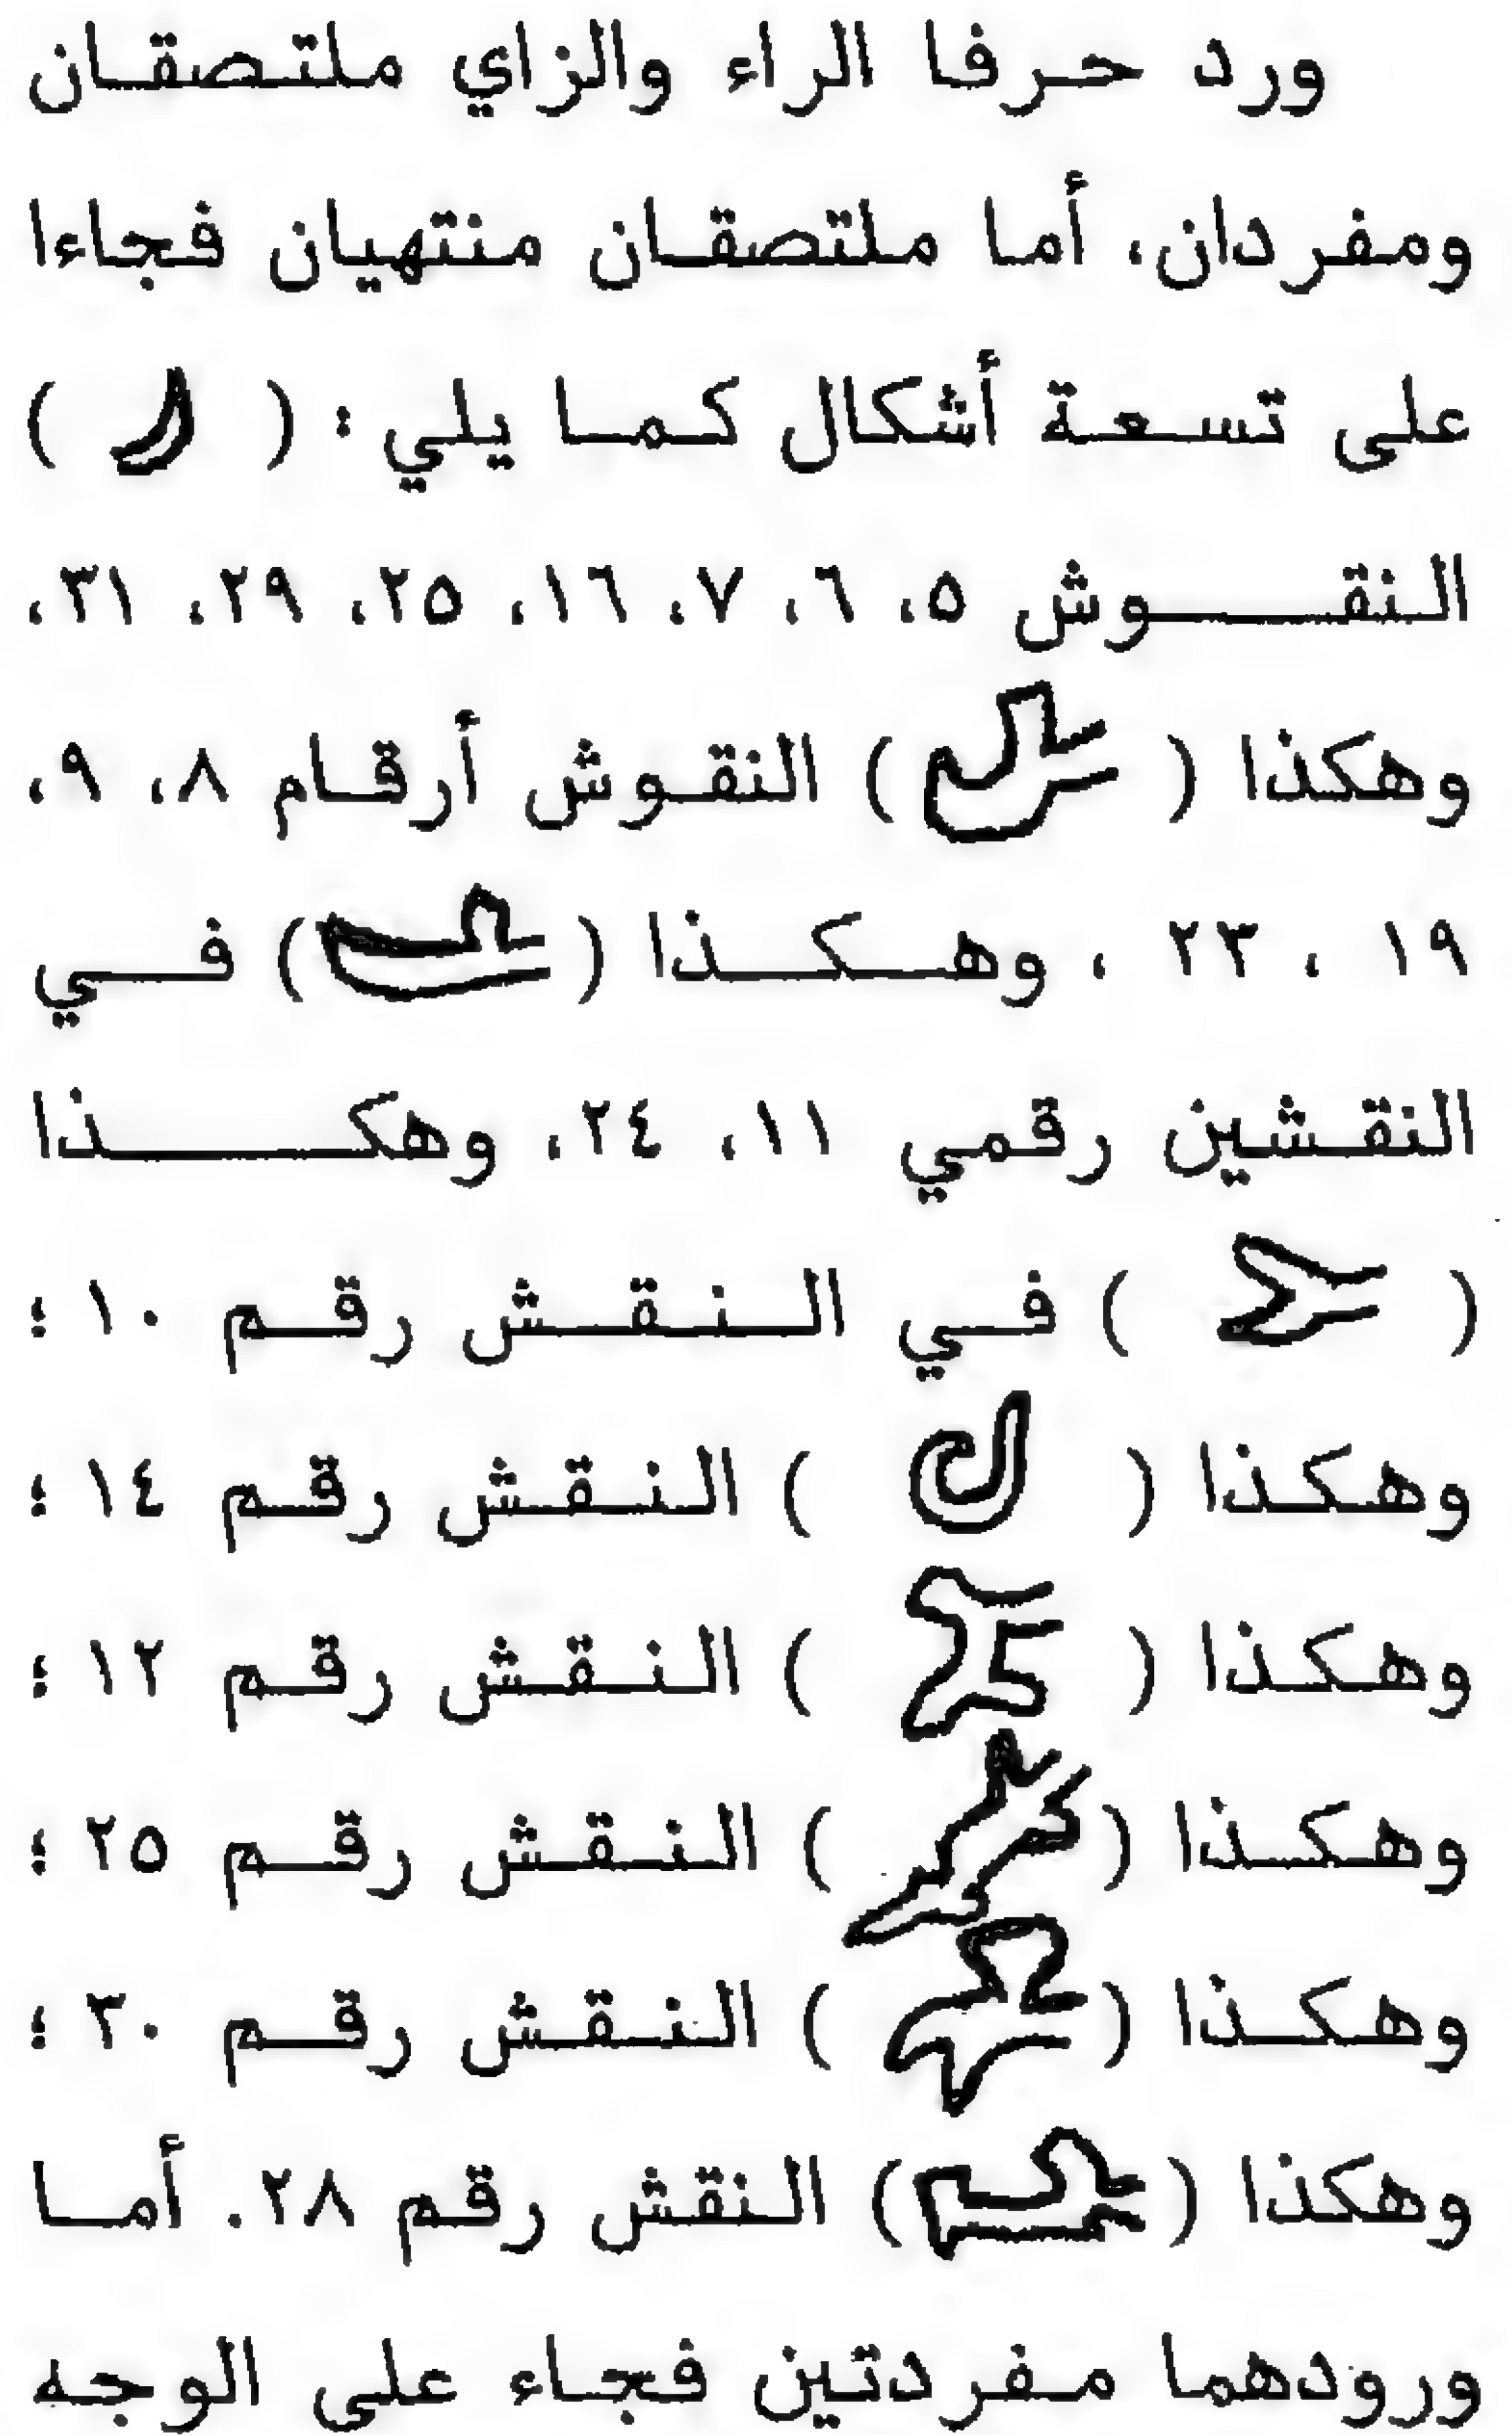 ورد حرفا الراء والزاي ملتصقان
ومفردان، أما ملتصقان منتهيان فجاءا
على تسعة أشكال كما يلي : ( )
النقوش ٥، ٦، ٧، ١٦، ٢٥، ٢٩، ٣١،
وهكذا ( ) النقوش أرقام ٨، ٩،
١٩ ، ٢٣ ، وهكذا ( ) في
النقشين رقمي ١١، ٢٤، وهكذا
( ) في النقش رقم ١٠ ؛
وهكذا ( ) النقش رقم ١٤ ؛
وهكذا ( ) النقش رقم ١٢ ؛
وهكذا ( ) النقش رقم ٢٥ ؛
وهكذا ( ) النقش رقم ٣٠ ؛
وهكذا ( ) النقش رقم ٢٨. أما
ورودهما مفردتين فجاء على الوجه